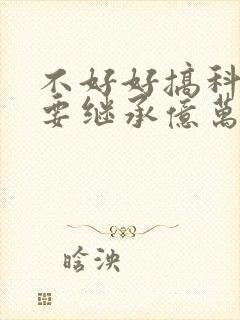 不好好搞科
要继承億萬
晗泱